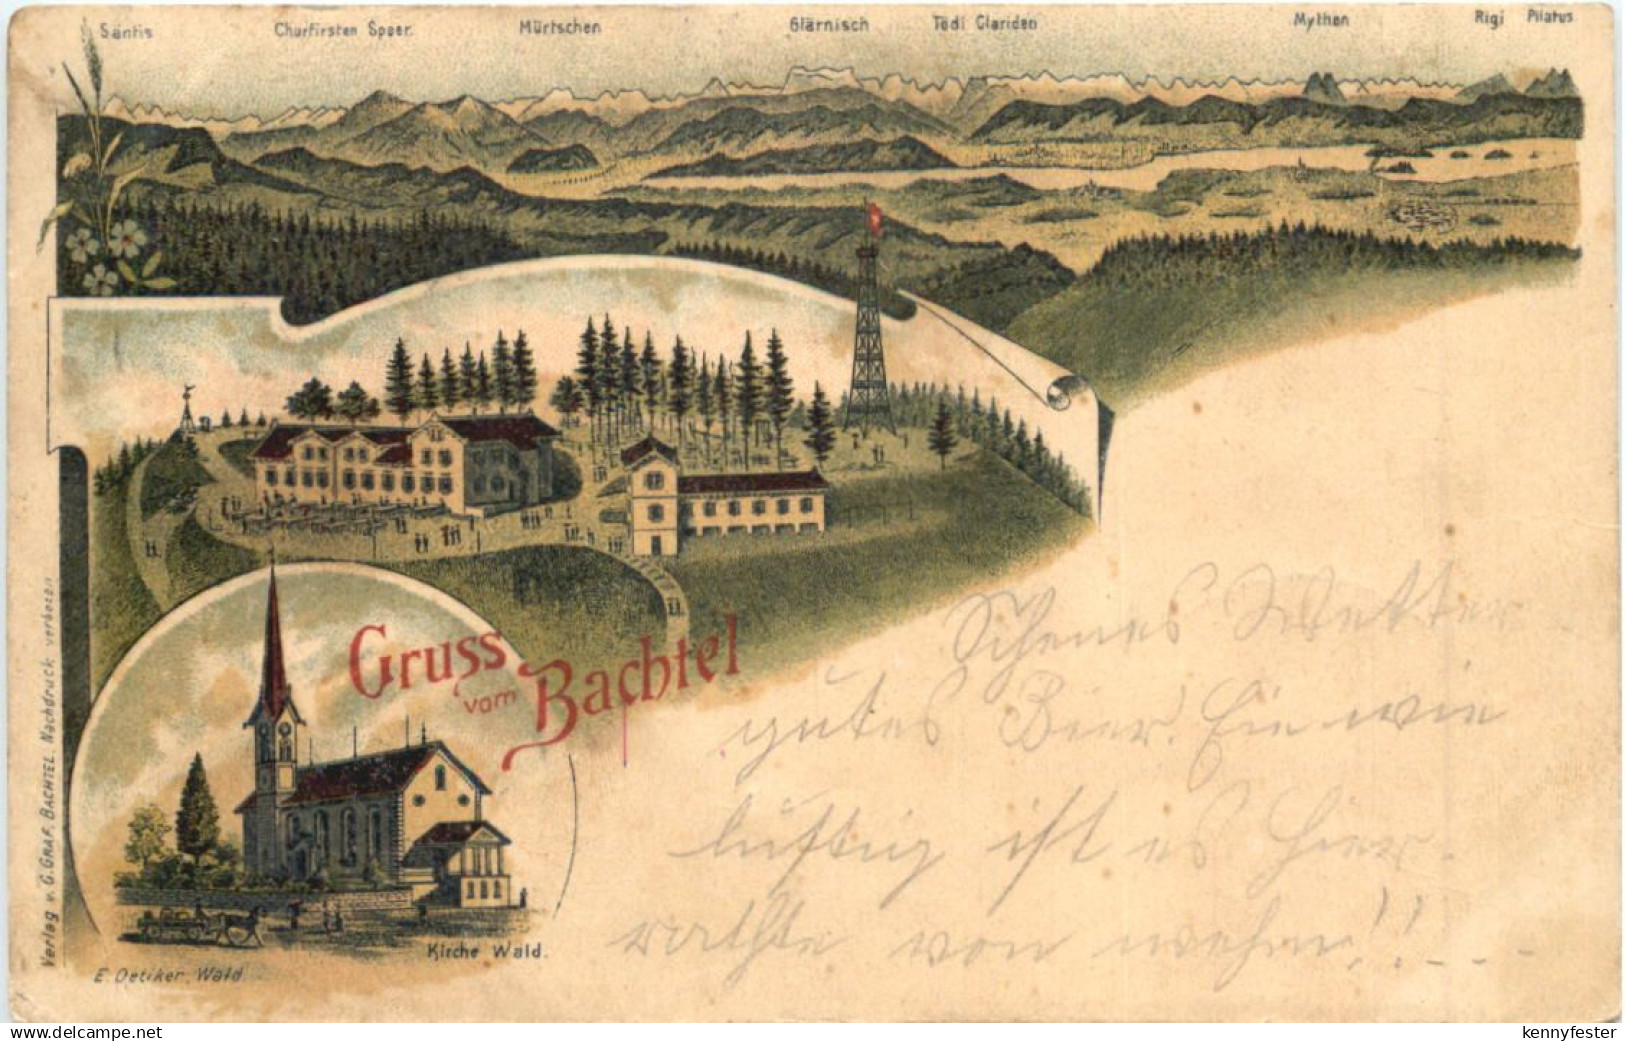 Säntis Churfirsten Speer. Mürtschen Glärnisch Tödi Clariden Mythen Rigi Pilatus
Gruss
vom Bachtel
Schenes Wetter
gutes Bier. Hie wie
luftig ist es hier.
rathte von wehm!!
Kirche Wald.
E. Oetiker, Wald.
Verlag v. G. GRAF, BACHTEL. Nachdruck verboten
www.delcampe.net
kennyfester